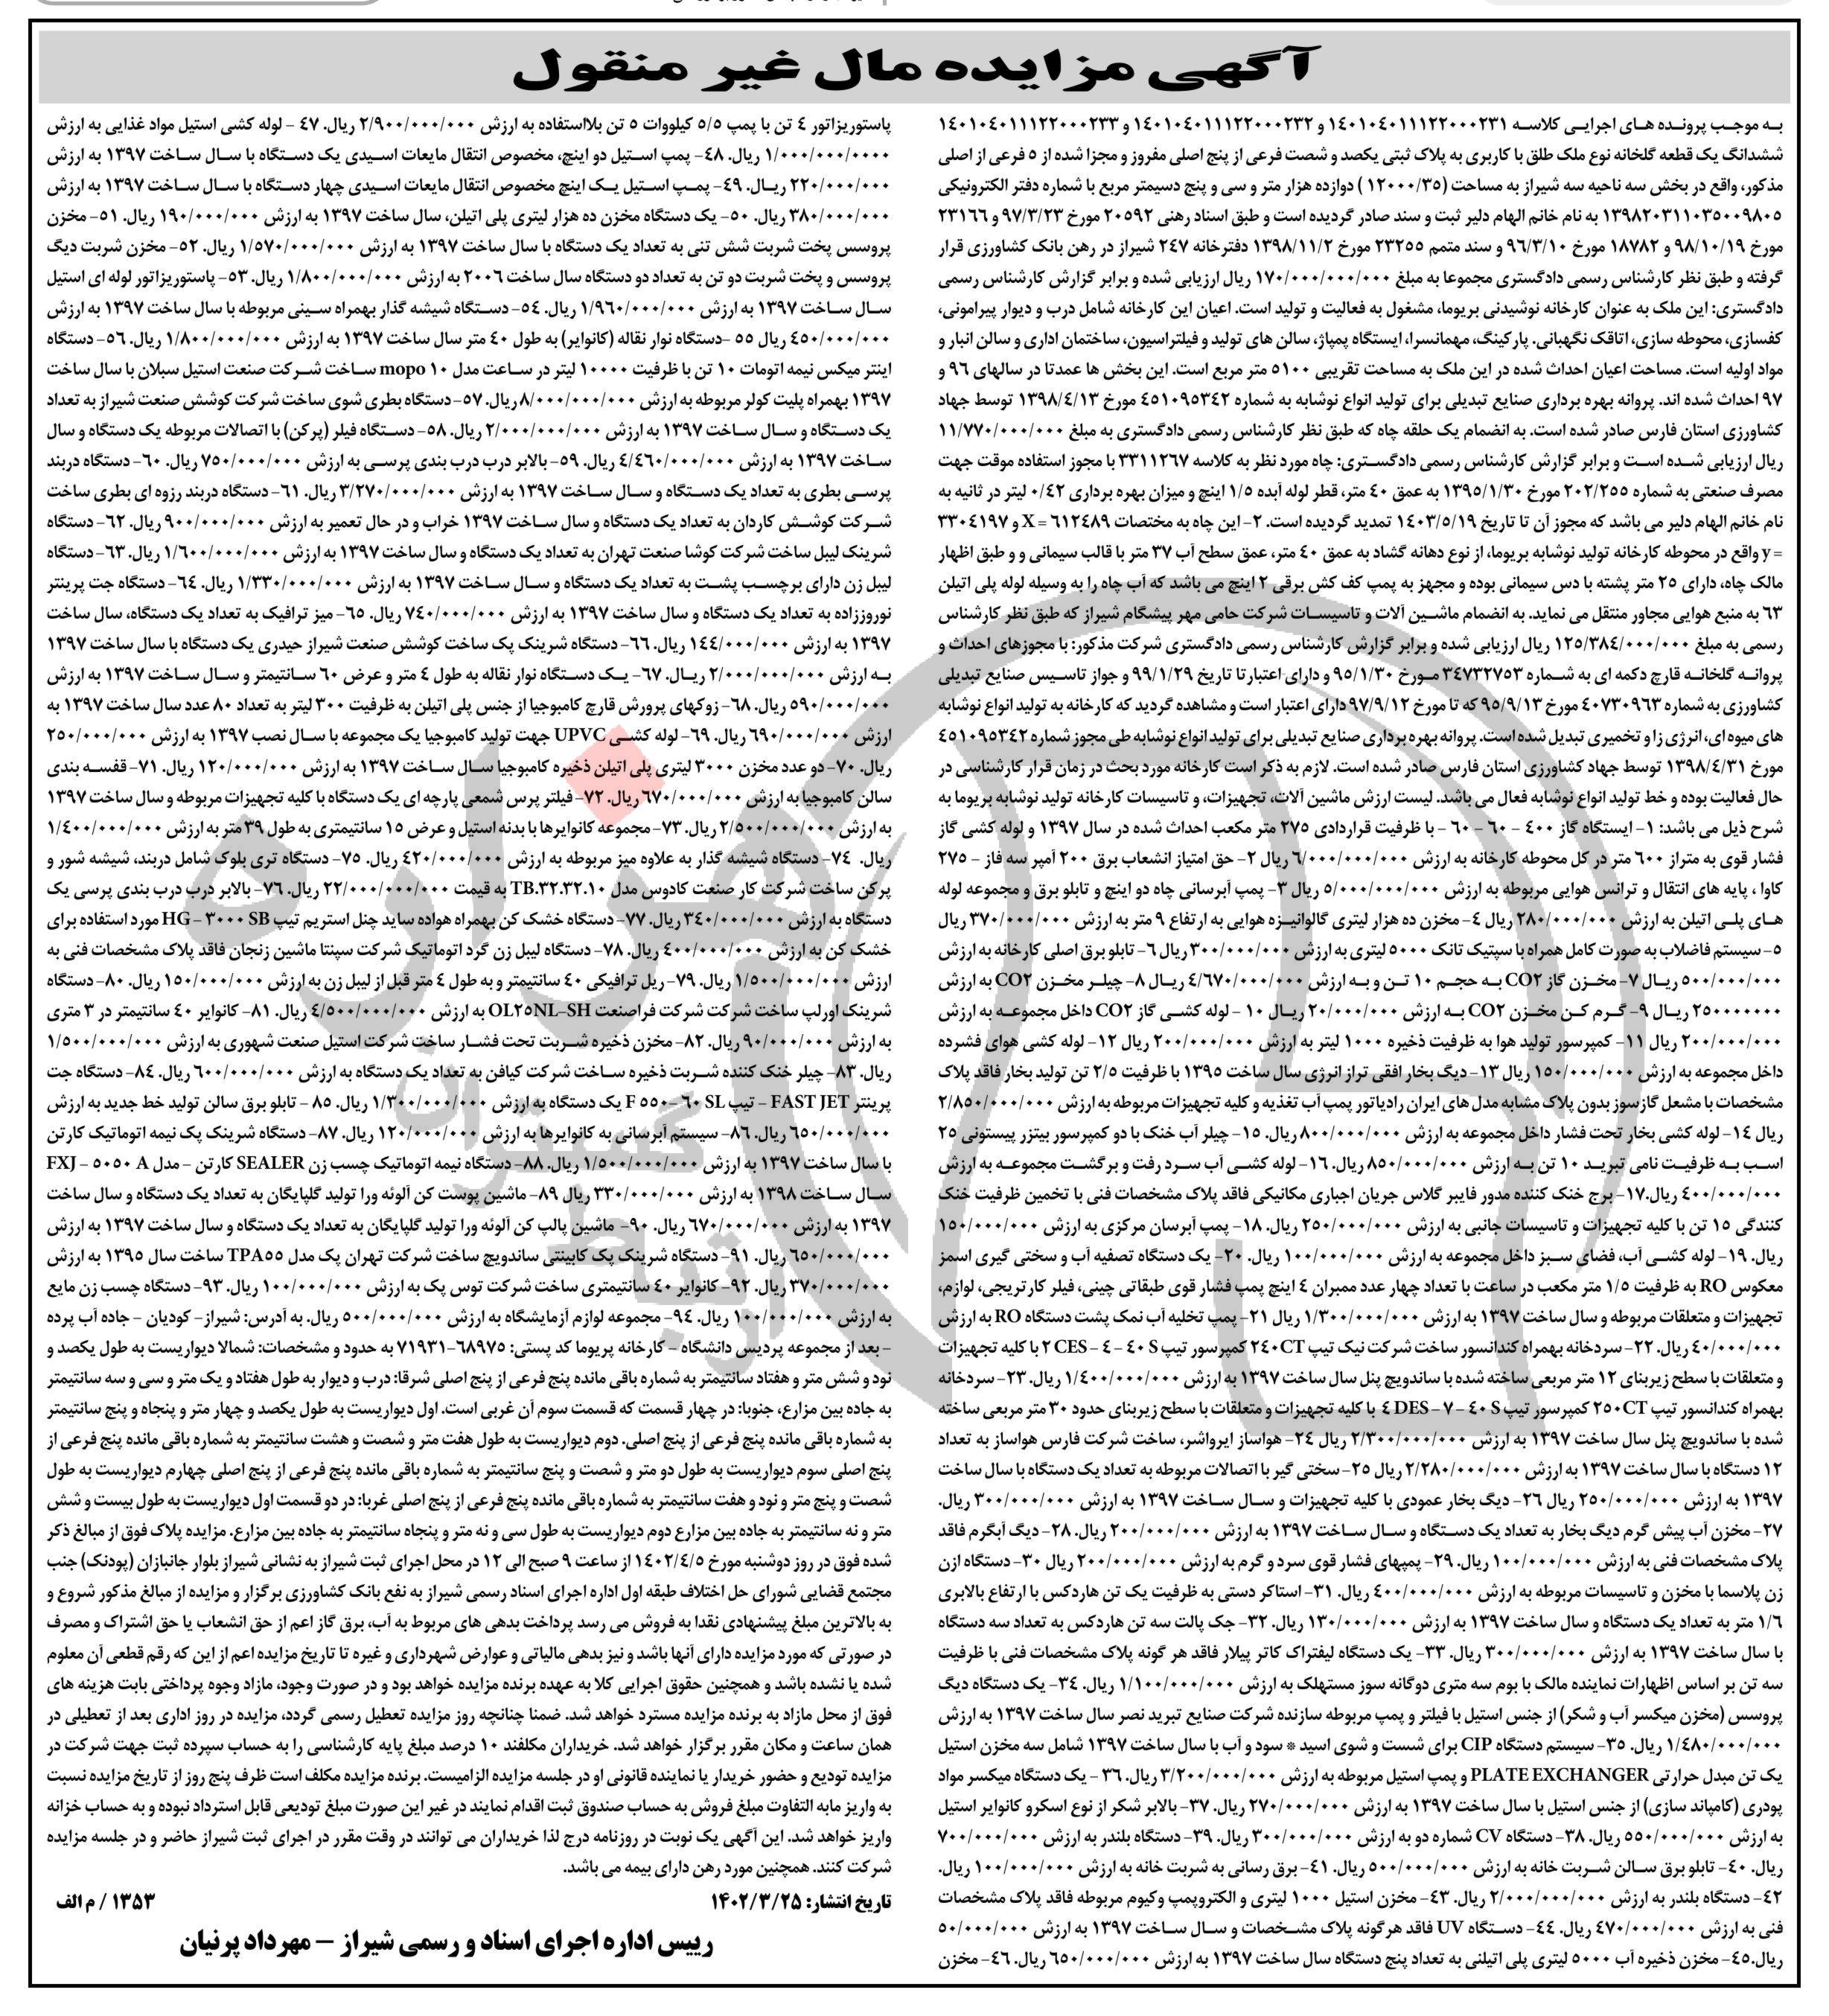 آگهی مزایده مال غیر منقول
به موجب پرونده های اجرایی کلاسه ۱۴۰۱۰۴۰۱۱۱۲۲۰۰۰۲۳۱ و ۱۴۰۱۰۴۰۱۱۱۲۲۰۰۰۲۳۲ و ۱۴۰۱۰۴۰۱۱۱۲۲۰۰۰۲۳۳
ششدانگ یک قطعه گلخانه نوع ملک طلق با کاربری به پلاک ثبتی یکصد و شصت فرعی از پنج اصلی مفروز و مجزا شده از ۵ فرعی از اصلی
مذکور، واقع در بخش سه ناحیه سه شیراز به مساحت (۱۲۰۰۰/۳۵ ) دوازده هزار متر و سی و پنج دسیمتر مربع با شماره دفتر الکترونیکی
۱۳۹۸۲۰۳۱۱۰۳۵۰۰۹۸۰۵ به نام خانم الهام دلیر ثبت و سند صادر گردیده است و طبق اسناد رهنی ۲۰۵۹۲ مورخ ۹۷/۳/۲۳ و ۲۳۱۶۶
مورخ ۹۸/۱۰/۱۹ و ۱۸۷۸۲ مورخ ۹۶/۳/۱۰ و سند متمم ۲۳۲۵۵ مورخ ۱۳۹۸/۱۱/۲ دفترخانه ۲۴۷ شیراز در رهن بانک کشاورزی قرار
گرفته و طبق نظر کارشناس رسمی دادگستری مجموعا به مبلغ ۱۷۰/۰۰۰/۰۰۰/۰۰۰ ریال ارزیابی شده و برابر گزارش کارشناس رسمی
دادگستری: این ملک به عنوان کارخانه نوشیدنی بریوما، مشغول به فعالیت و تولید است. اعیان این کارخانه شامل درب و دیوار پیرامونی،
کفسازی، محوطه سازی، اتاقک نگهبانی. پارکینگ، مهمانسرا، ایستگاه پمپاژ، سالن های تولید و فیلتراسیون، ساختمان اداری و سالن انبار و
مواد اولیه است. مساحت اعیان احداث شده در این ملک به مساحت تقریبی ۵۱۰۰ متر مربع است. این بخش ها عمدتا در سالهای ۹۶ و
۹۷ احداث شده اند. پروانه بهره برداری صنایع تبدیلی برای تولید انواع نوشابه به شماره ۴۵۱۰۹۵۳۴۲ مورخ ۱۳۹۸/۴/۱۳ توسط جهاد
کشاورزی استان فارس صادر شده است. به انضمام یک حلقه چاه که طبق نظر کارشناس رسمی دادگستری به مبلغ ۱۱/۷۷۰/۰۰۰/۰۰۰
ریال ارزیابی شده است و برابر گزارش کارشناس رسمی دادگستری: چاه مورد نظر به کلاسه ۳۳۱۱۲۶۷ با مجوز استفاده موقت جهت
مصرف صنعتی به شماره ۲۰۲/۲۵۵ مورخ ۱۳۹۵/۱/۳۰ به عمق ۴۰ متر، قطر لوله آبده ۱/۵ اینچ و میزان بهره برداری ۰/۴۲ لیتر در ثانیه به
نام خانم الهام دلیر می باشد که مجوز آن تا تاریخ ۱۴۰۳/۵/۱۹ تمدید گردیده است. ۲- این چاه به مختصات X = ۶۱۲۴۸۹ و ۳۳۰۴۱۹۷
= y واقع در محوطه کارخانه تولید نوشابه بریوما، از نوع دهانه گشاد به عمق ۴۰ متر، عمق سطح آب ۳۷ متر با قالب سیمانی و و طبق اظهار
مالک چاه، دارای ۲۵ متر پشته با دس سیمانی بوده و مجهز به پمپ کف کش برقی ۲ اینچ می باشد که آب چاه را به وسیله لوله پلی اتیلن
۶۳ به منبع هوایی مجاور منتقل می نماید. به انضمام ماشین آلات و تاسیسات شرکت حامی مهر پیشگام شیراز که طبق نظر کارشناس
رسمی به مبلغ ۱۲۵/۳۸۴/۰۰۰/۰۰۰ ریال ارزیابی شده و برابر گزارش کارشناس رسمی دادگستری شرکت مذکور: با مجوزهای احداث و
پروانه گلخانه قارچ دکمه ای به شماره ۳۴۷۳۲۷۵۳ مورخ ۹۵/۱/۳۰ و دارای اعتبار تا تاریخ ۹۹/۱/۲۹ و جواز تاسیس صنایع تبدیلی
کشاورزی به شماره ۴۰۷۳۰۹۶۳ مورخ ۹۵/۹/۱۳ که تا مورخ ۹۷/۹/۱۲ دارای اعتبار است و مشاهده گردید که کارخانه به تولید انواع نوشابه
های میوه ای، انرژی زا و تخمیری تبدیل شده است. پروانه بهره برداری صنایع تبدیلی برای تولید انواع نوشابه طی مجوز شماره ۴۵۱۰۹۵۳۴۲
مورخ ۱۳۹۸/۴/۳۱ توسط جهاد کشاورزی استان فارس صادر شده است. لازم به ذکر است کارخانه مورد بحث در زمان قرار کارشناسی در
حال فعالیت بوده و خط تولید انواع نوشابه فعال می باشد. لیست ارزش ماشین آلات، تجهیزات، و تاسیسات کارخانه تولید نوشابه بریوما به
شرح ذیل می باشد: ۱- ایستگاه گاز ۴۰۰ - ۶۰ - ۶۰ - با ظرفیت قراردادی ۲۷۵ متر مکعب احداث شده در سال ۱۳۹۷ و لوله کشی گاز
فشار قوی به متراز ۶۰۰ متر در کل محوطه کارخانه به ارزش ۶/۰۰۰/۰۰۰/۰۰۰ ریال ۲- حق امتیاز انشعاب برق ۲۰۰ آمپر سه فاز - ۲۷۵
کاوا ، پایه های انتقال و ترانس هوایی مربوطه به ارزش ۵/۰۰۰/۰۰۰/۰۰۰ ریال ۳- پمپ آبرسانی چاه دو اینچ و تابلو برق و مجموعه لوله
های پلی اتیلن به ارزش ۲۸۰/۰۰۰/۰۰۰ ریال ۴- مخزن ده هزار لیتری گالوانیزه هوایی به ارتفاع ۹ متر به ارزش ۳۷۰/۰۰۰/۰۰۰ ریال
۵- سیستم فاضلاب به صورت کامل همراه با سپتیک تانک ۵۰۰۰ لیتری به ارزش ۳۰۰/۰۰۰/۰۰۰ ریال ۶- تابلو برق اصلی کارخانه به ارزش
۵۰۰/۰۰۰/۰۰۰ ریال ۷- مخزن گاز CO۲ به حجم ۱۰ تن و به ارزش ۴/۶۷۰/۰۰۰/۰۰۰ ریال ۸- چیلر مخزن CO۲ به ارزش
۲۵۰۰۰۰۰۰۰ ریال ۹- گرم کن مخزن CO۲ به ارزش ۲۰/۰۰۰/۰۰۰ ریال ۱۰ - لوله کشی گاز CO۲ داخل مجموعه به ارزش
۲۰۰/۰۰۰/۰۰۰ ریال ۱۱- کمپرسور تولید هوا به ظرفیت ذخیره ۱۰۰۰ لیتر به ارزش ۲۰۰/۰۰۰/۰۰۰ ریال ۱۲- لوله کشی هوای فشرده
داخل مجموعه به ارزش ۱۵۰/۰۰۰/۰۰۰ ریال ۱۳- دیگ بخار افقی تراز انرژی سال ساخت ۱۳۹۵ با ظرفیت ۲/۵ تن تولید بخار فاقد پلاک
مشخصات با مشعل گازسوز بدون پلاک مشابه مدل های ایران رادیاتور پمپ آب تغذیه و کلیه تجهیزات مربوطه به ارزش ۲/۸۵۰/۰۰۰/۰۰۰
ریال ۱۴- لوله کشی بخار تحت فشار داخل مجموعه به ارزش ۸۰۰/۰۰۰/۰۰۰ ریال. ۱۵- چیلر آب خنک با دو کمپرسور بیتزر پیستونی ۲۵
اسب به ظرفیت نامی تبرید ۱۰ تن به ارزش ۸۵۰/۰۰۰/۰۰۰ ریال. ۱۶- لوله کشی آب سرد رفت و برگشت مجموعه به ارزش
۴۰۰/۰۰۰/۰۰۰ ریال.۱۷- برج خنک کننده مدور فایبر گلاس جریان اجباری مکانیکی فاقد پلاک مشخصات فنی با تخمین ظرفیت خنک
کنندگی ۱۵ تن با کلیه تجهیزات و تاسیسات جانبی به ارزش ۲۵۰/۰۰۰/۰۰۰ ریال. ۱۸- پمپ آبرسان مرکزی به ارزش ۱۵۰/۰۰۰/۰۰۰
ریال. ۱۹- لوله کشی آب، فضای سبز داخل مجموعه به ارزش ۱۰۰/۰۰۰/۰۰۰ ریال. ۲۰- یک دستگاه تصفیه آب و سختی گیری اسمز
معکوس RO به ظرفیت ۱/۵ متر مکعب در ساعت با تعداد چهار عدد ممبران ۴ اینچ پمپ فشار قوی طبقاتی چینی، فیلر کارتریجی، لوازم،
تجهیزات و متعلقات مربوطه و سال ساخت ۱۳۹۷ به ارزش ۱/۳۰۰/۰۰۰/۰۰۰ ریال ۲۱- پمپ تخلیه آب نمک پشت دستگاه RO به ارزش
۴۰/۰۰۰/۰۰۰ ریال. ۲۲- سردخانه بهمراه کندانسور ساخت شرکت نیک تیپ ۲۴۰CT کمپرسور تیپ ۲ CES - ۴ - ۴۰ S با کلیه تجهیزات
و متعلقات با سطح زیربنای ۱۲ متر مربعی ساخته شده با ساندویچ پنل سال ساخت ۱۳۹۷ به ارزش ۱/۴۰۰/۰۰۰/۰۰۰ ریال. ۲۳- سردخانه
بهمراه کندانسور تیپ ۲۵۰CT کمپرسور تیپ ۴ DES - ۷ - ۴۰ S با کلیه تجهیزات و متعلقات با سطح زیربنای حدود ۳۰ متر مربعی ساخته
شده با ساندویچ پنل سال ساخت ۱۳۹۷ به ارزش ۲/۳۰۰/۰۰۰/۰۰۰ ریال ۲۴- هواساز ایرواشر، ساخت شرکت فارس هواساز به تعداد
۱۲ دستگاه با سال ساخت ۱۳۹۷ به ارزش ۲/۲۸۰/۰۰۰/۰۰۰ ریال ۲۵- سختی گیر با اتصالات مربوطه به تعداد یک دستگاه با سال ساخت
۱۳۹۷ به ارزش ۲۵۰/۰۰۰/۰۰۰ ریال ۲۶- دیگ بخار عمودی با کلیه تجهیزات و سال ساخت ۱۳۹۷ به ارزش ۳۰۰/۰۰۰/۰۰۰ ریال.
۲۷- مخزن آب پیش گرم دیگ بخار به تعداد یک دستگاه و سال ساخت ۱۳۹۷ به ارزش ۲۰۰/۰۰۰/۰۰۰ ریال. ۲۸- دیگ آبگرم فاقد
پلاک مشخصات فنی به ارزش ۱۰۰/۰۰۰/۰۰۰ ریال. ۲۹- پمپهای فشار قوی سرد و گرم به ارزش ۲۰۰/۰۰۰/۰۰۰ ریال ۳۰- دستگاه ازن
زن پلاسما با مخزن و تاسیسات مربوطه به ارزش ۴۰۰/۰۰۰/۰۰۰ ریال. ۳۱- استاکر دستی به ظرفیت یک تن هاردکس با ارتفاع بالابری
۱/۶ متر به تعداد یک دستگاه و سال ساخت ۱۳۹۷ به ارزش ۱۳۰/۰۰۰/۰۰۰ ریال. ۳۲- جک پالت سه تن هاردکس به تعداد سه دستگاه
با سال ساخت ۱۳۹۷ به ارزش ۳۰۰/۰۰۰/۰۰۰ ریال. ۳۳- یک دستگاه لیفتراک کاتر پیلار فاقد هر گونه پلاک مشخصات فنی با ظرفیت
سه تن بر اساس اظهارات نماینده مالک با بوم سه متری دوگانه سوز مستهلک به ارزش ۱/۱۰۰/۰۰۰/۰۰۰ ریال. ۳۴- یک دستگاه دیگ
پروسس (مخزن میکسر آب و شکر) از جنس استیل با فیلتر و پمپ مربوطه سازنده شرکت صنایع تبرید نصر سال ساخت ۱۳۹۷ به ارزش
۱/۴۸۰/۰۰۰/۰۰۰ ریال. ۳۵- سیستم دستگاه CIP برای شست و شوی اسید * سود و آب با سال ساخت ۱۳۹۷ شامل سه مخزن استیل
یک تن مبدل حرارتی PLATE EXCHANGER و پمپ استیل مربوطه به ارزش ۳/۲۰۰/۰۰۰/۰۰۰ ریال. ۳۶ - یک دستگاه میکسر مواد
پودری (کامپاند سازی) از جنس استیل با سال ساخت ۱۳۹۷ به ارزش ۲۷۰/۰۰۰/۰۰۰ ریال. ۳۷- بالابر شکر از نوع اسکرو کانوایر استیل
به ارزش ۵۵۰/۰۰۰/۰۰۰ ریال. ۳۸- دستگاه CV شماره دو به ارزش ۳۰۰/۰۰۰/۰۰۰ ریال. ۳۹- دستگاه بلندر به ارزش ۷۰۰/۰۰۰/۰۰۰
ریال. ۴۰- تابلو برق سالن شربت خانه به ارزش ۵۰۰/۰۰۰/۰۰۰ ریال. ۴۱- برق رسانی به شربت خانه به ارزش ۱۰۰/۰۰۰/۰۰۰ ریال.
۴۲- دستگاه بلندر به ارزش ۲/۰۰۰/۰۰۰/۰۰۰ ریال. ۴۳- مخزن استیل ۱۰۰۰ لیتری و الکتروپمپ وکیوم مربوطه فاقد پلاک مشخصات
فنی به ارزش ۴۷۰/۰۰۰/۰۰۰ ریال. ۴۴- دستگاه UV فاقد هرگونه پلاک مشخصات و سال ساخت ۱۳۹۷ به ارزش ۵۰/۰۰۰/۰۰۰
ریال.۴۵- مخزن ذخیره آب ۵۰۰۰ لیتری پلی اتیلنی به تعداد پنج دستگاه سال ساخت ۱۳۹۷ به ارزش ۶۵۰/۰۰۰/۰۰۰ ریال. ۴۶- مخزن
پاستوریزاتور ۴ تن با پمپ ۵/۵ کیلووات ۵ تن بلااستفاده به ارزش ۲/۹۰۰/۰۰۰/۰۰۰ ریال. ۴۷ - لوله کشی استیل مواد غذایی به ارزش
۱/۰۰۰/۰۰۰/۰۰۰۰ ریال. ۴۸- پمپ استیل دو اینچ، مخصوص انتقال مایعات اسیدی یک دستگاه با سال ساخت ۱۳۹۷ به ارزش
۲۲۰/۰۰۰/۰۰۰ ریال. ۴۹- پمپ استیل یک اینچ مخصوص انتقال مایعات اسیدی چهار دستگاه با سال ساخت ۱۳۹۷ به ارزش
۳۸۰/۰۰۰/۰۰۰ ریال. ۵۰- یک دستگاه مخزن ده هزار لیتری پلی اتیلن، سال ساخت ۱۳۹۷ به ارزش ۱۹۰/۰۰۰/۰۰۰ ریال. ۵۱- مخزن
پروسس پخت شربت شش تنی به تعداد یک دستگاه با سال ساخت ۱۳۹۷ به ارزش ۱/۵۷۰/۰۰۰/۰۰۰ ریال. ۵۲- مخزن شربت دیگ
پروسس و پخت شربت دو تن به تعداد دو دستگاه سال ساخت ۲۰۰۶ به ارزش ۱/۸۰۰/۰۰۰/۰۰۰ ریال. ۵۳- پاستوریزاتور لوله ای استیل
سال ساخت ۱۳۹۷ به ارزش ۱/۹۶۰/۰۰۰/۰۰۰ ریال. ۵۴- دستگاه شیشه گذار بهمراه سینی مربوطه با سال ساخت ۱۳۹۷ به ارزش
۴۵۰/۰۰۰/۰۰۰ ریال ۵۵ -دستگاه نوار نقاله (کانوایر) به طول ۴۰ متر سال ساخت ۱۳۹۷ به ارزش ۱/۸۰۰/۰۰۰/۰۰۰ ریال. ۵۶- دستگاه
اینتر میکس نیمه اتومات ۱۰ تن با ظرفیت ۱۰۰۰۰ لیتر در ساعت مدل mopo ۱۰ ساخت شرکت صنعت استیل سبلان با سال ساخت
۱۳۹۷ بهمراه پلیت کولر مربوطه به ارزش ۸/۰۰۰/۰۰۰/۰۰۰ ریال. ۵۷- دستگاه بطری شوی ساخت شرکت کوشش صنعت شیراز به تعداد
یک دستگاه و سال ساخت ۱۳۹۷ به ارزش ۲/۰۰۰/۰۰۰/۰۰۰ ریال. ۵۸- دستگاه فیلر (پرکن) با اتصالات مربوطه یک دستگاه و سال
ساخت ۱۳۹۷ به ارزش ۴/۴۶۰/۰۰۰/۰۰۰ ریال. ۵۹- بالابر درب درب بندی پرسی به ارزش ۷۵۰/۰۰۰/۰۰۰ ریال. ۶۰- دستگاه دربند
پرسی بطری به تعداد یک دستگاه و سال ساخت ۱۳۹۷ به ارزش ۳/۲۷۰/۰۰۰/۰۰۰ ریال. ۶۱- دستگاه دربند رزوه ای بطری ساخت
شرکت کوشش کاردان به تعداد یک دستگاه و سال ساخت ۱۳۹۷ خراب و در حال تعمیر به ارزش ۹۰۰/۰۰۰/۰۰۰ ریال. ۶۲- دستگاه
شرینک لیبل ساخت شرکت کوشا صنعت تهران به تعداد یک دستگاه و سال ساخت ۱۳۹۷ به ارزش ۱/۶۰۰/۰۰۰/۰۰۰ ریال. ۶۳- دستگاه
لیبل زن دارای برچسب پشت به تعداد یک دستگاه و سال ساخت ۱۳۹۷ به ارزش ۱/۳۳۰/۰۰۰/۰۰۰ ریال. ۶۴- دستگاه جت پرینتر
نوروززاده به تعداد یک دستگاه و سال ساخت ۱۳۹۷ به ارزش ۷۴۰/۰۰۰/۰۰۰ ریال. ۶۵- میز ترافیک به تعداد یک دستگاه، سال ساخت
۱۳۹۷ به ارزش ۱۴۴/۰۰۰/۰۰۰ ریال. ۶۶- دستگاه شرینک پک ساخت کوشش صنعت شیراز حیدری یک دستگاه با سال ساخت ۱۳۹۷
به ارزش ۲/۰۰۰/۰۰۰/۰۰۰ ریال. ۶۷- یک دستگاه نوار نقاله به طول ۴ متر و عرض ۶۰ سانتیمتر و سال ساخت ۱۳۹۷ به ارزش
۵۹۰/۰۰۰/۰۰۰ ریال. ۶۸- زوکهای پرورش قارچ کامبوجیا از جنس پلی اتیلن به ظرفیت ۳۰۰ لیتر به تعداد ۸۰ عدد سال ساخت ۱۳۹۷ به
ارزش ۶۹۰/۰۰۰/۰۰۰ ریال. ۶۹- لوله کشی UPVC جهت تولید کامبوجیا یک مجموعه با سال نصب ۱۳۹۷ به ارزش ۲۵۰/۰۰۰/۰۰۰
ریال. ۷۰- دو عدد مخزن ۳۰۰۰ لیتری پلی اتیلن ذخیره کامبوجیا سال ساخت ۱۳۹۷ به ارزش ۱۲۰/۰۰۰/۰۰۰ ریال. ۷۱- قفسه بندی
سالن کامبوجیا به ارزش ۶۷۰/۰۰۰/۰۰۰ ریال. ۷۲- فیلتر پرس شمعی پارچه ای یک دستگاه با کلیه تجهیزات مربوطه و سال ساخت ۱۳۹۷
به ارزش ۲/۵۰۰/۰۰۰/۰۰۰ ریال. ۷۳- مجموعه کانوایرها با بدنه استیل و عرض ۱۵ سانتیمتری به طول ۳۹ متر به ارزش ۱/۴۰۰/۰۰۰/۰۰۰
ریال. ۷۴- دستگاه شیشه گذار به علاوه میز مربوطه به ارزش ۴۲۰/۰۰۰/۰۰۰ ریال. ۷۵- دستگاه تری بلوک شامل دربند، شیشه شور و
پرکن ساخت شرکت کار صنعت کادوس مدل TB.۳۲.۳۲.۱۰ به قیمت ۲۲/۰۰۰/۰۰۰/۰۰۰ ریال. ۷۶- بالابر درب درب بندی پرسی یک
دستگاه به ارزش ۳۴۰/۰۰۰/۰۰۰ ریال. ۷۷- دستگاه خشک کن بهمراه هواده ساید چنل استریم تیپ HG - ۳۰۰۰ SB مورد استفاده برای
خشک کن به ارزش ۴۰۰/۰۰۰/۰۰۰ ریال. ۷۸- دستگاه لیبل زن گرد اتوماتیک شرکت سپنتا ماشین زنجان فاقد پلاک مشخصات فنی به
ارزش ۱/۵۰۰/۰۰۰/۰۰۰ ریال. ۷۹- ریل ترافیکی ۴۰ سانتیمتر و به طول ۴ متر قبل از لیبل زن به ارزش ۱۵۰/۰۰۰/۰۰۰ ریال. ۸۰- دستگاه
شرینک اورلپ ساخت شرکت شرکت فراصنعت OL۲۵NL-SH به ارزش ۴/۵۰۰/۰۰۰/۰۰۰ ریال. ۸۱- کانوایر ۴۰ سانتیمتر در ۳ متری
به ارزش ۹۰/۰۰۰/۰۰۰ ریال. ۸۲- مخزن ذخیره شربت تحت فشار ساخت شرکت استیل صنعت شهوری به ارزش ۱/۵۰۰/۰۰۰/۰۰۰
ریال. ۸۳- چیلر خنک کننده شربت ذخیره ساخت شرکت کیافن به تعداد یک دستگاه به ارزش ۶۰۰/۰۰۰/۰۰۰ ریال. ۸۴- دستگاه جت
پرینتر FAST JET - تیپ F ۵۵۰-۶۰ SL یک دستگاه به ارزش ۱/۳۰۰/۰۰۰/۰۰۰ ریال. ۸۵ - تابلو برق سالن تولید خط جدید به ارزش
۶۵۰/۰۰۰/۰۰۰ ریال. ۸۶- سیستم آبرسانی به کانوایرها به ارزش ۱۲۰/۰۰۰/۰۰۰ ریال. ۸۷- دستگاه شرینک پک نیمه اتوماتیک کارتن
با سال ساخت ۱۳۹۷ به ارزش ۱/۵۰۰/۰۰۰/۰۰۰ ریال. ۸۸- دستگاه نیمه اتوماتیک چسب زن SEALER کارتن - مدل FXJ - ۵۰۵۰ A
سال ساخت ۱۳۹۸ به ارزش ۳۳۰/۰۰۰/۰۰۰ ریال ۸۹- ماشین پوست کن آلوئه ورا تولید گلپایگان به تعداد یک دستگاه و سال ساخت
۱۳۹۷ به ارزش ۶۷۰/۰۰۰/۰۰۰ ریال. ۹۰- ماشین پالپ کن آلوئه ورا تولید گلپایگان به تعداد یک دستگاه و سال ساخت ۱۳۹۷ به ارزش
۶۵۰/۰۰۰/۰۰۰ ریال. ۹۱- دستگاه شرینک پک کابینتی ساندویچ ساخت شرکت تهران پک مدل TPA۵۵ ساخت سال ۱۳۹۵ به ارزش
۳۷۰/۰۰۰/۰۰۰ ریال. ۹۲- کانوایر ۴۰ سانتیمتری ساخت شرکت توس پک به ارزش ۱۰۰/۰۰۰/۰۰۰ ریال. ۹۳- دستگاه چسب زن مایع
به ارزش ۱۰۰/۰۰۰/۰۰۰ ریال. ۹۴- مجموعه لوازم آزمایشگاه به ارزش ۵۰۰/۰۰۰/۰۰۰ ریال. به آدرس: شیراز- کودیان - جاده آب پرده
- بعد از مجموعه پردیس دانشگاه - کارخانه پریوما کد پستی: ۶۸۹۷۵-۷۱۹۳۱ به حدود و مشخصات: شمالا دیواریست به طول یکصد و
نود و شش متر و هفتاد سانتیمتر به شماره باقی مانده پنج فرعی از پنج اصلی شرقا: درب و دیوار به طول هفتاد و یک متر و سی و سه سانتیمتر
به جاده بین مزارع، جنوبا: در چهار قسمت که قسمت سوم آن غربی است. اول دیواریست به طول یکصد و چهار متر و پنجاه و پنج سانتیمتر
به شماره باقی مانده پنج فرعی از پنج اصلی. دوم دیواریست به طول هفت متر و شصت و هشت سانتیمتر به شماره باقی مانده پنج فرعی از
پنج اصلی سوم دیواریست به طول دو متر و شصت و پنج سانتیمتر به شماره باقی مانده پنج فرعی از پنج اصلی چهارم دیواریست به طول
شصت و پنج متر و نود و هفت سانتیمتر به شماره باقی مانده پنج فرعی از پنج اصلی غربا: در دو قسمت اول دیواریست به طول بیست و شش
متر و نه سانتیمتر به جاده بین مزارع دوم دیواریست به طول سی و نه متر و پنجاه سانتیمتر به جاده بین مزارع. مزایده پلاک فوق از مبالغ ذکر
شده فوق در روز دوشنبه مورخ ۱۴۰۲/۴/۵ از ساعت ۹ صبح الی ۱۲ در محل اجرای ثبت شیراز به نشانی شیراز بلوار جانبازان (پودنک) جنب
مجتمع قضایی شورای حل اختلاف طبقه اول اداره اجرای اسناد رسمی شیراز به نفع بانک کشاورزی برگزار و مزایده از مبالغ مذکور شروع و
به بالاترین مبلغ پیشنهادی نقدا به فروش می رسد پرداخت بدهی های مربوط به آب، برق گاز اعم از حق انشعاب یا حق اشتراک و مصرف
در صورتی که مورد مزایده دارای آنها باشد و نیز بدهی مالیاتی و عوارض شهرداری و غیره تا تاریخ مزایده اعم از این که رقم قطعی آن معلوم
شده یا نشده باشد و همچنین حقوق اجرایی کلا به عهده برنده مزایده خواهد بود و در صورت وجود، مازاد وجوه پرداختی بابت هزینه های
فوق از محل مازاد به برنده مزایده مسترد خواهد شد. ضمنا چنانچه روز مزایده تعطیل رسمی گردد، مزایده در روز اداری بعد از تعطیلی در
همان ساعت و مکان مقرر برگزار خواهد شد. خریداران مکلفند ۱۰ درصد مبلغ پایه کارشناسی را به حساب سپرده ثبت جهت شرکت در
مزایده تودیع و حضور خریدار یا نماینده قانونی او در جلسه مزایده الزامیست. برنده مزایده مکلف است ظرف پنج روز از تاریخ مزایده نسبت
به واریز مابه التفاوت مبلغ فروش به حساب صندوق ثبت اقدام نمایند در غیر این صورت مبلغ تودیعی قابل استرداد نبوده و به حساب خزانه
واریز خواهد شد. این آگهی یک نوبت در روزنامه درج لذا خریداران می توانند در وقت مقرر در اجرای ثبت شیراز حاضر و در جلسه مزایده
شرکت کنند. همچنین مورد رهن دارای بیمه می باشد.
تاریخ انتشار: ۱۴۰۲/۳/۲۵
۱۳۵۳ / م الف
رییس اداره اجرای اسناد و رسمی شیراز – مهرداد پرنیان